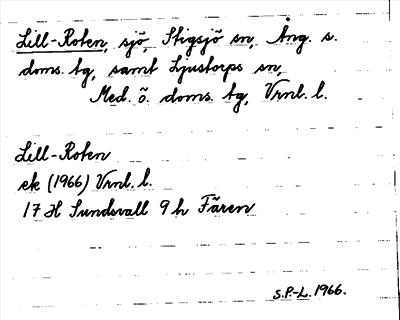 Lill-Roten, sjö, Stigsjö sn, Ång. s.
doms. tg, samt Ljustorps sn,
Med. ö. doms. tg, Vrnl. l.
Lill-Roten
ek (1966) Vrnl. l.
17 H Sundsvall 9 h Fären
S.P.-L. 1966.